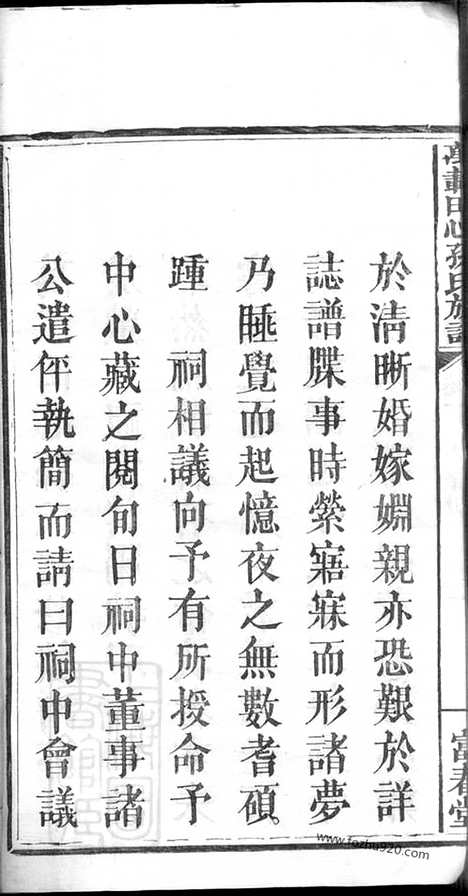 萬載田心孫氏族譜
富春堂
於清晰婚嫁婣親亦恐艱於詳
誌譜牒事時縈寤寐而形諸夢
乃睡覺而起憶夜之無數耆碩
踵　祠相議向予有所授命予
中心藏之閱旬日祠中董事諸
公遣伻執簡而請曰祠中會議
www.fozhu920.com